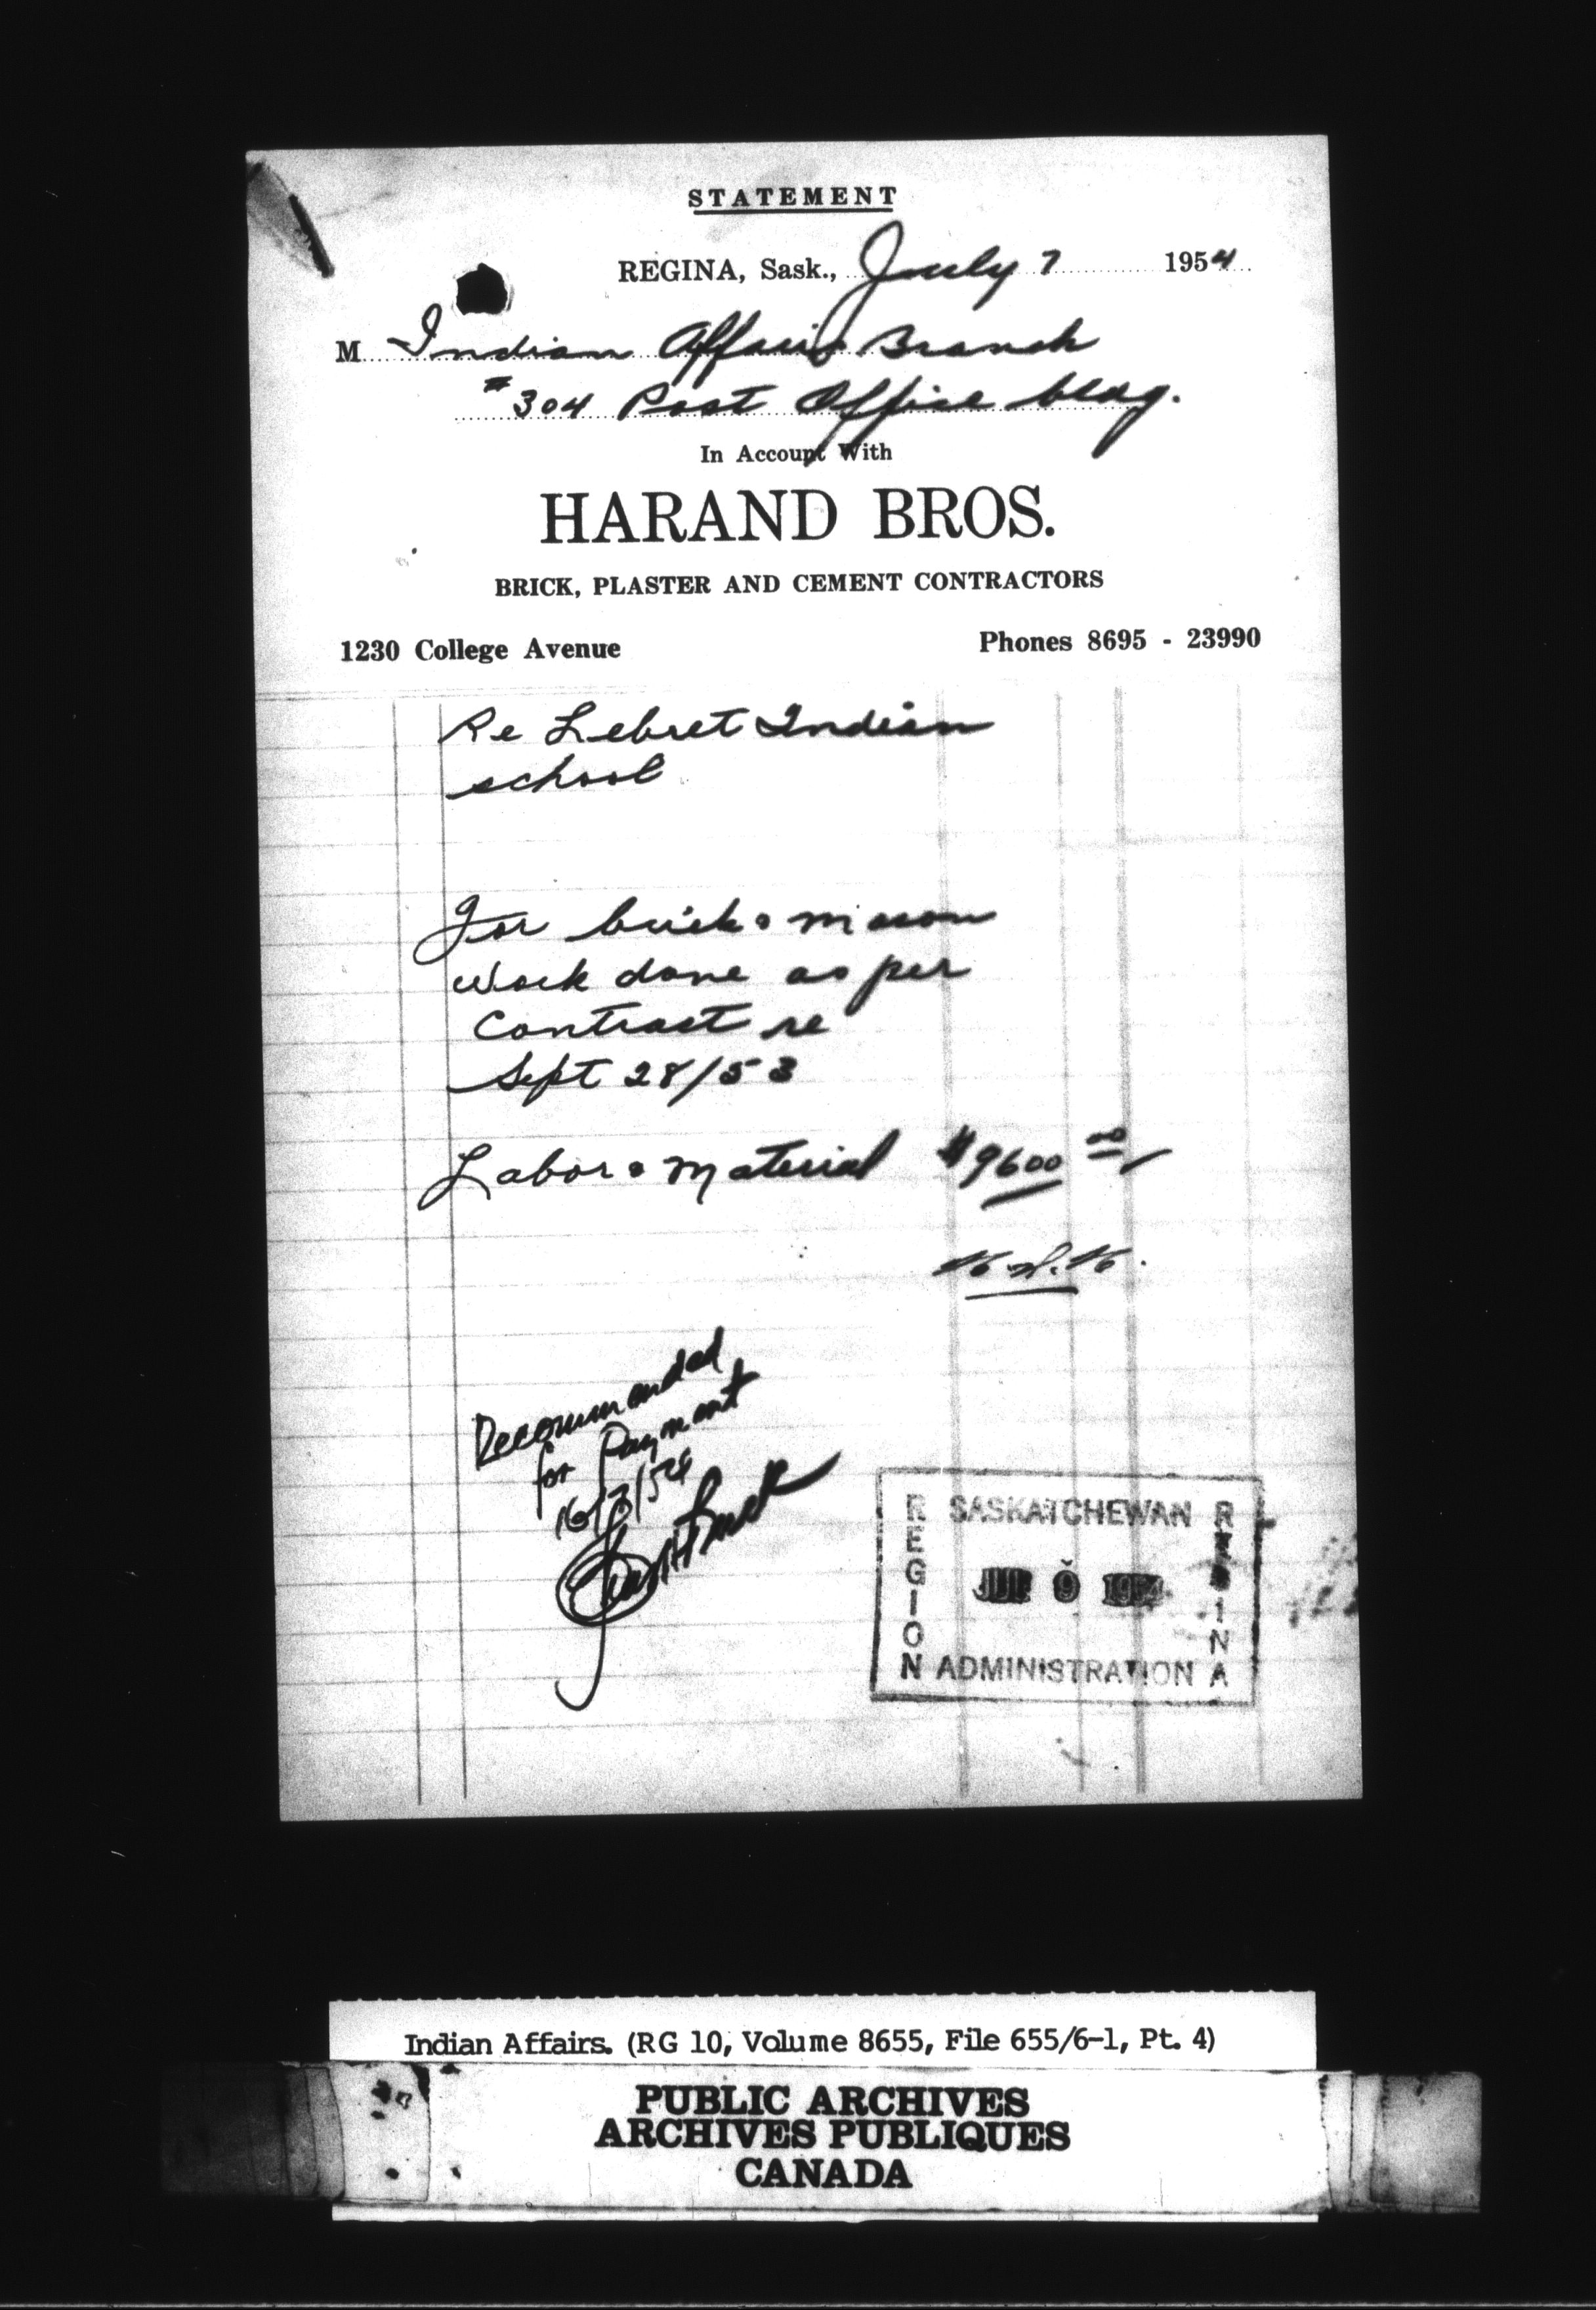 STATEMENT
REGINA, Sask., July 7 1954
M Indian Affairs Branch
#304 Post Office bldg.
In Account With
HARAND BROS.
BRICK, PLASTER AND CEMENT CONTRACTORS
1230 College Avenue Phones 8695 - 23990
Re Lebret Indian
school
For brick & mason
work done as per
Contract re
Sept 28/53
Labor & Material $9600 00
Recommended
for Payment
16/7/54
SASKATCHEWAN
REGION
REGINA
9 1954
ADMINISTRATION
Indian Affairs. (RG 10, Volume 8655, File 655/6-1, Pt. 4)
PUBLIC ARCHIVES
ARCHIVES PUBLIQUES
CANADA